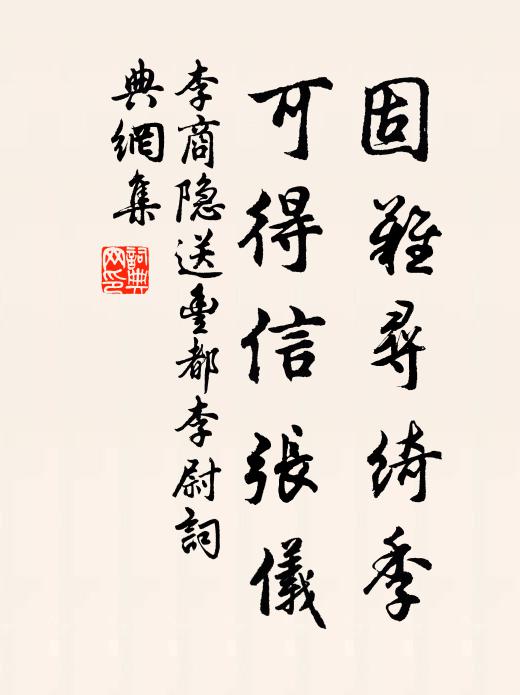 固難尋綺季
可得信張儀
李商隐送豐都李尉詞
典網集
詞典
网印